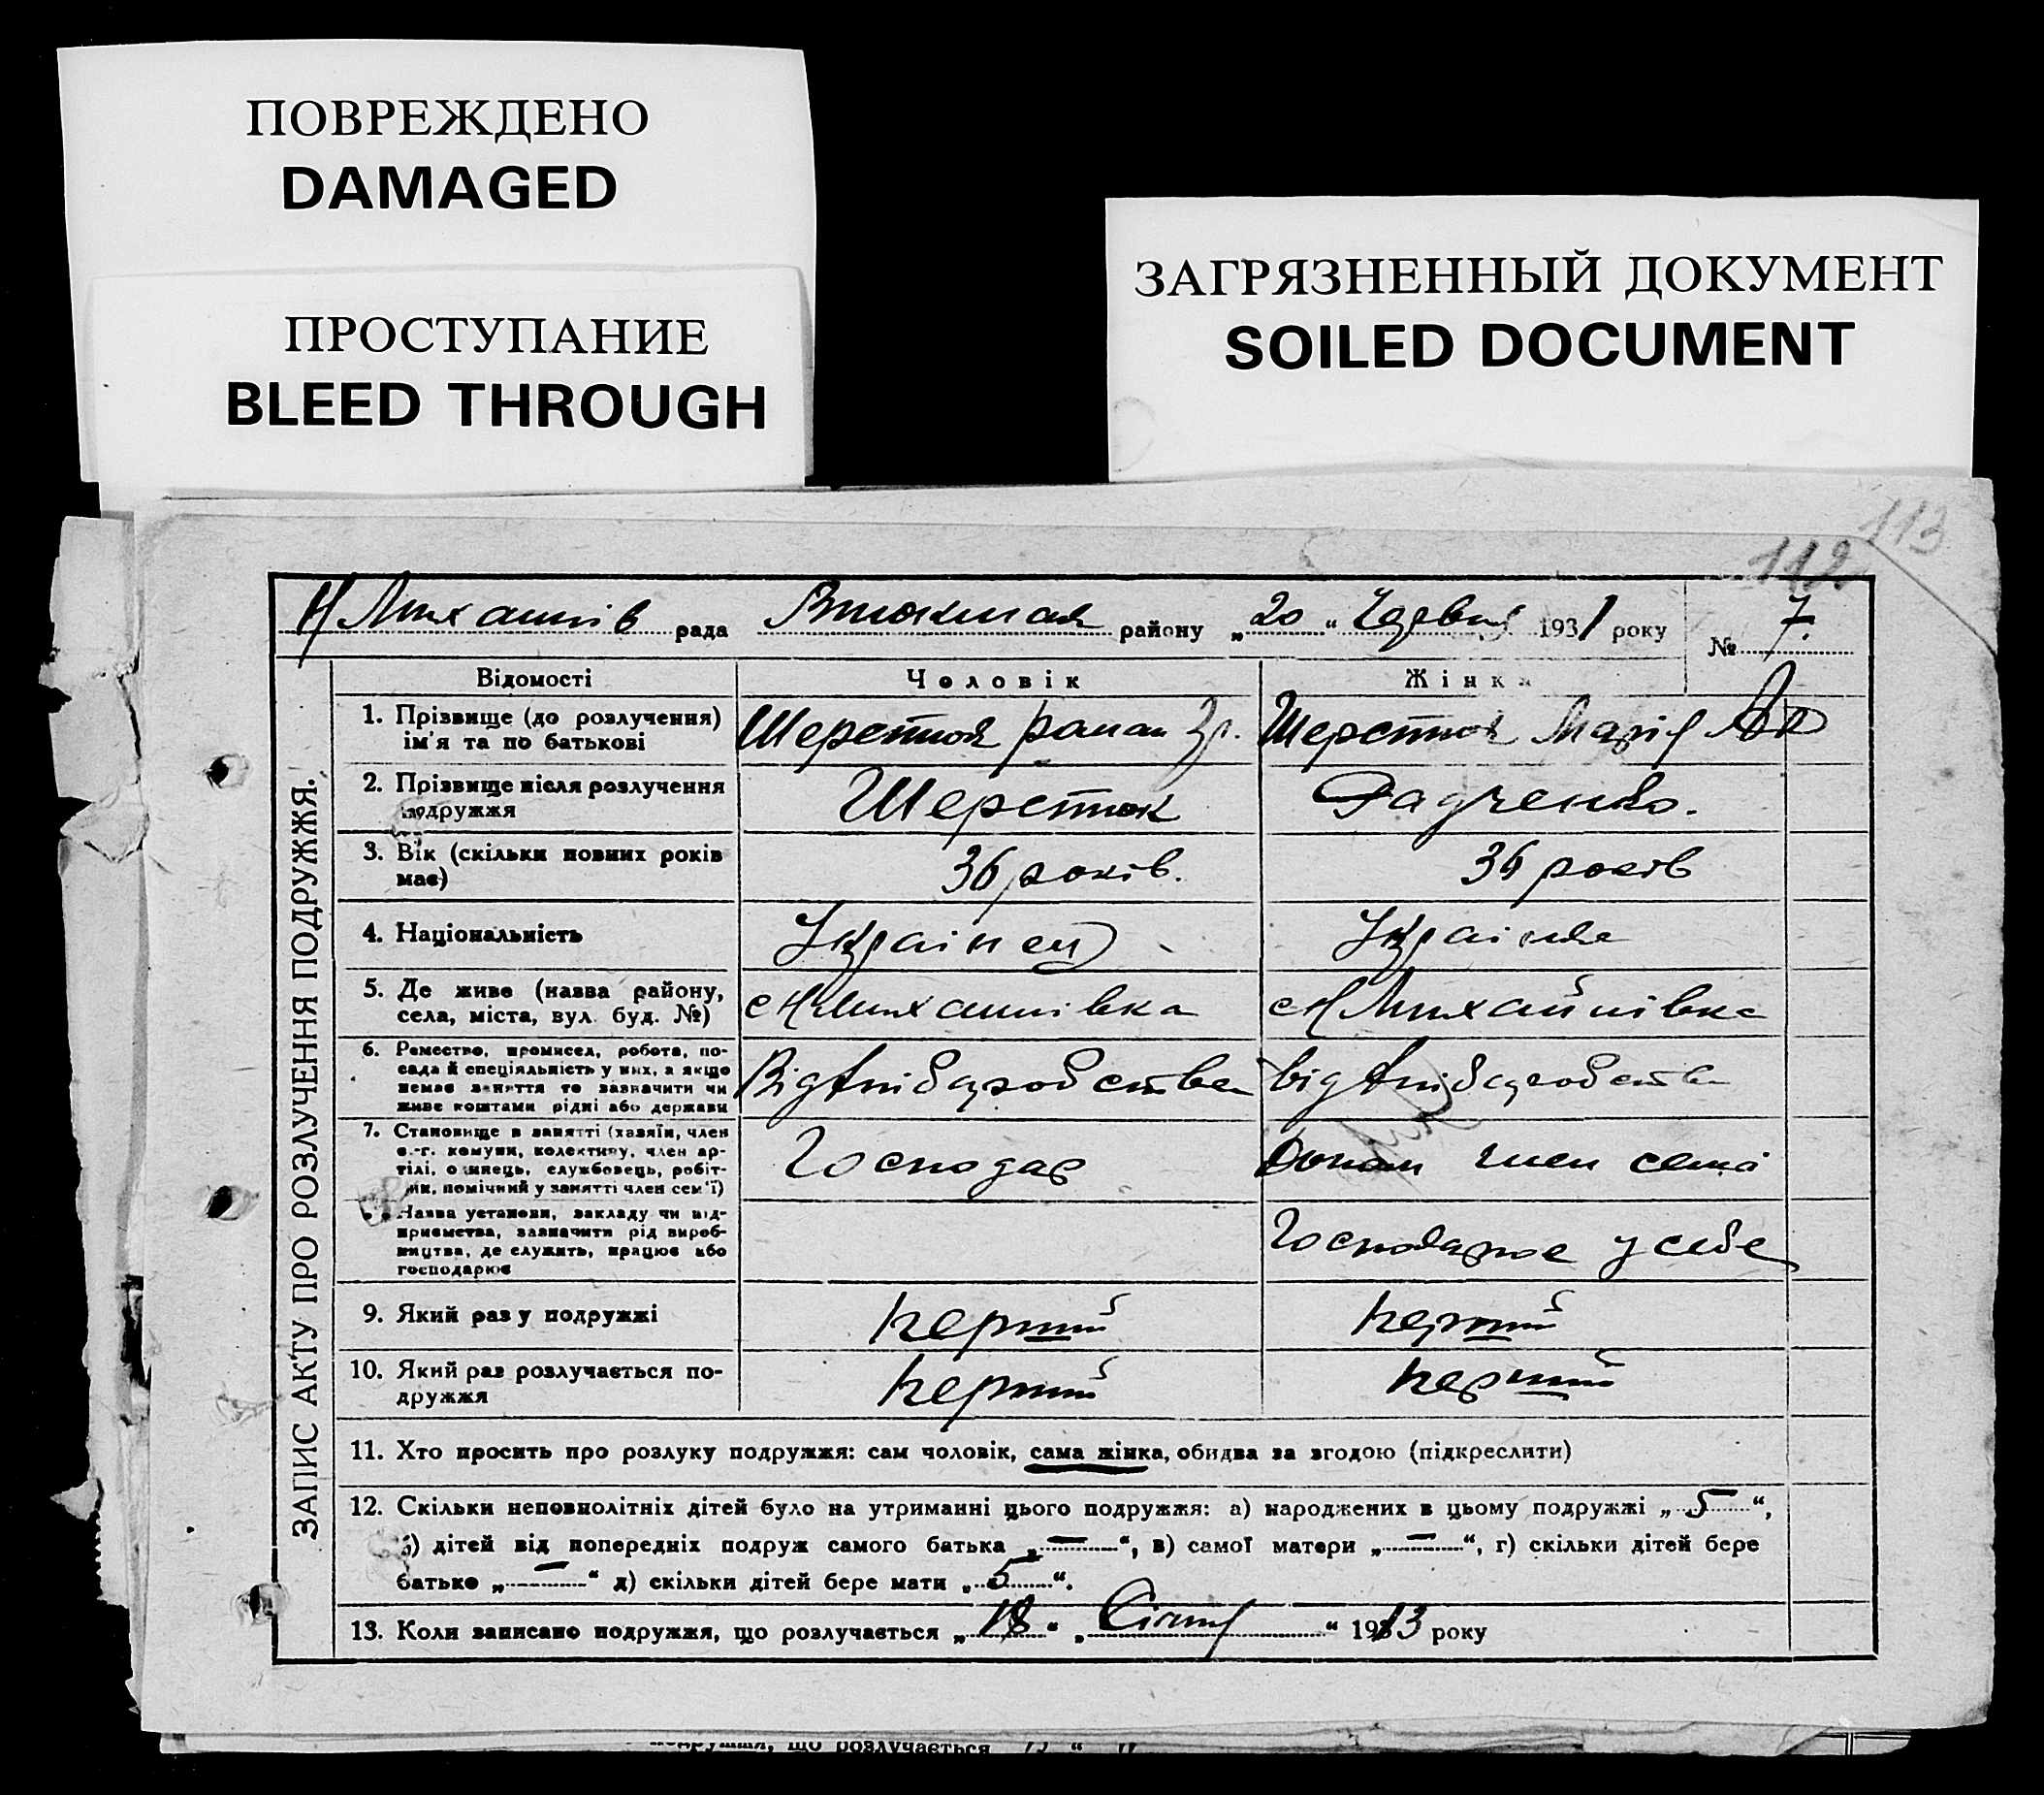 ПОВРЕЖДЕНО
DAMAGED
ПРОСТУПАНИЕ
BLEED THROUGH
ЗАГРЯЗНЕННЫЙ ДОКУМЕНТ
SOILED DOCUMENT
113
112
Н Михайлів рада району „20“ Червня 1931 року № 7.
ЗАПИС АКТУ ПРО РОЗЛУЧЕННЯ ПОДРУЖЖЯ.
Відомості Чоловік Жінка
1. Прізвище (до розлучення) ім'я та по батькові Шерстюк Роман Гр. Шерстюк Марія
2. Прізвище після розлучення подружжя Шерстюк Радченко.
3. Вік (скільки повних років має) 36 років. 36 років
4. Національність Українец Українка
5. Де живе (назва району, села, міста, вул. буд. №) с Н Михайлівка с Н Михайлівка
6. Ремество, промисел, робота, посада й спеціяльність у них, а якщо немає заняття то зазначити чи живе коштами рідні або держави Від хлібаробства від хлібаробства
7. Становище в занятті (хазяїн, член с.-г. комуни, колективу, член артілі, одинець, службовець, робітник, помічний у занятті член сем'ї) Господар член семі
Назва установи, закладу чи підприємства, зазначити рід виробництва, де служить, працює або господарює Господарює у себе
9. Який раз у подружжі перший перший
10. Який раз розлучається подружжя перший перший
11. Хто просить про розлуку подружжя: сам чоловік, сама жінка, обидва за згодою (підкреслити)
12. Скільки неповнолітніх дітей було на утриманні цього подружжя: а) народжених в цьому подружжі „5“,
б) дітей від попередніх подруж самого батька „—“, в) самої матери „—“, г) скільки дітей бере
батько „—“ д) скільки дітей бере мати „5“.
13. Коли записано подружжя, що розлучається „18“ „Січня“ 1913 року
подружжя, що розлучається